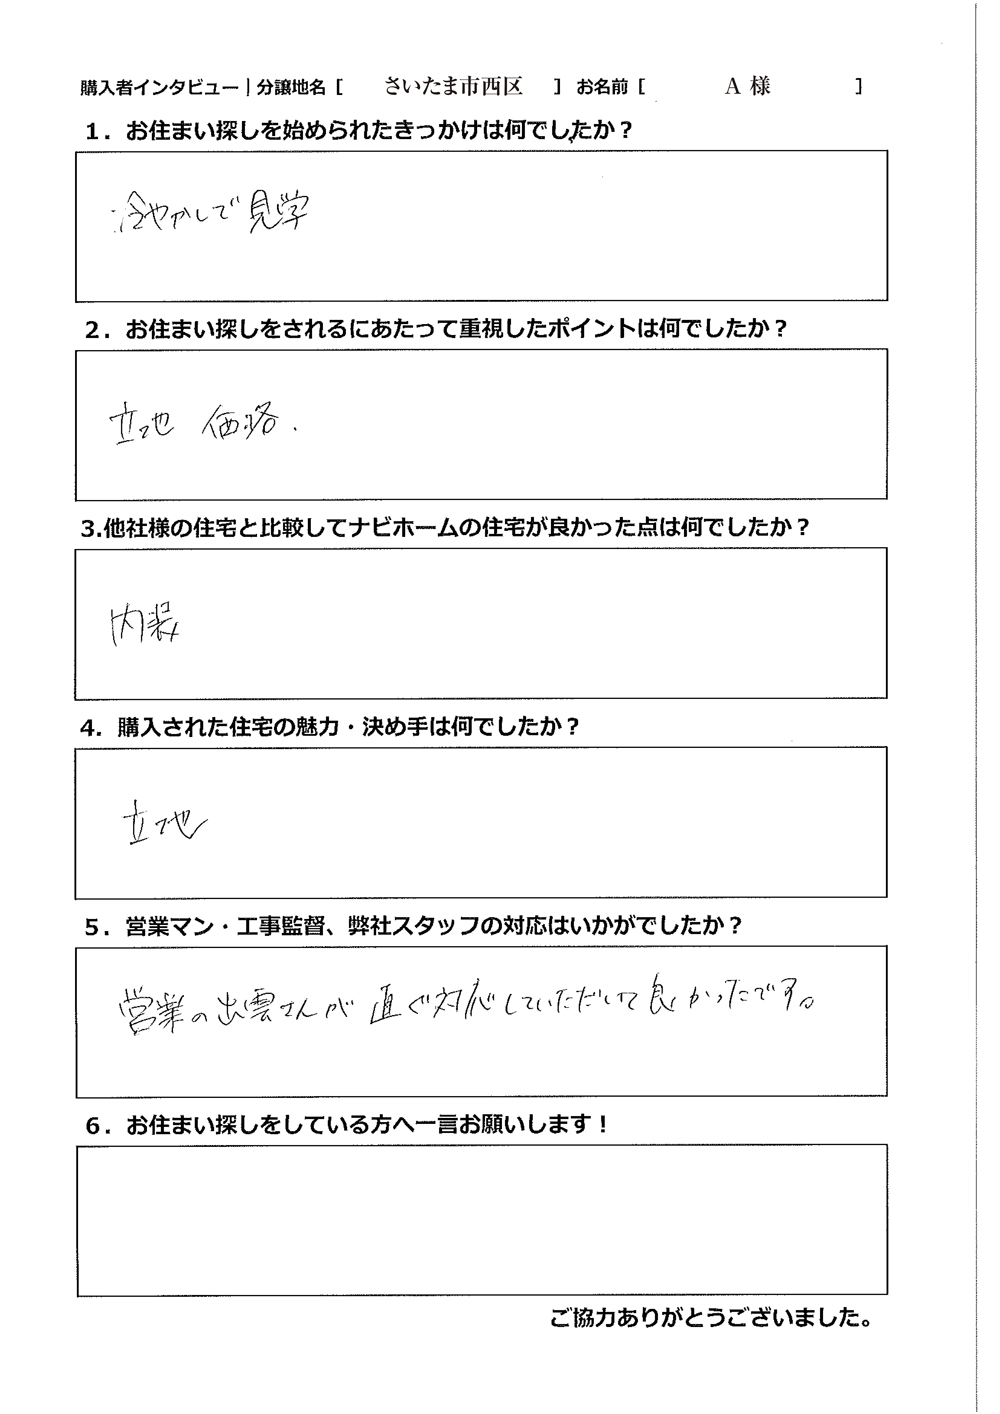 購入者インタビュー｜分譲地名［ さいたま市西区 ］ お名前［ A 様 ］
１．お住まい探しを始められたきっかけは何でしたか？
冷やかしで見学
２．お住まい探しをされるにあたって重視したポイントは何でしたか？
立地 価格．
3.他社様の住宅と比較してナビホームの住宅が良かった点は何でしたか？
内装
４．購入された住宅の魅力・決め手は何でしたか？
立地
５．営業マン・工事監督、弊社スタッフの対応はいかがでしたか？
営業の出雲さんが直ぐ対応していただいて良かったです。
６．お住まい探しをしている方へ一言お願いします！
ご協力ありがとうございました。